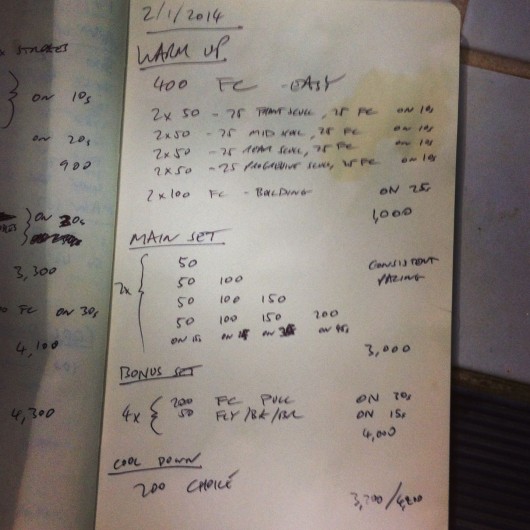 STROKES
ON 10s
ON 20s
900
ON 30s
3,300
FC ON 30s
4,100
4,300
2/1/2014
WARM UP
400 FC - EASY
2 x 50 - 25 FRONT SCULL, 25 FC ON 10s
2 x 50 - 25 MID SCULL, 25 FC ON 10s
2 x 50 - 25 REAR SCULL, 25 FC ON 10s
2 x 50 - 25 PROGRESSIVE SCULL, 25 FC ON 10s
2 x 100 FC - BUILDING ON 25s
1,000
MAIN SET
50 CONSISTENT
50 100 PACING
2x 50 100 150
50 100 150 200
ON 15s ON ON ON 45s
3,000
BONUS SET
4x 200 FC PULL ON 30s
50 FLY/BK/BR ON 15s
4,000
COOL DOWN
200 CHOICE
3,200/4,200